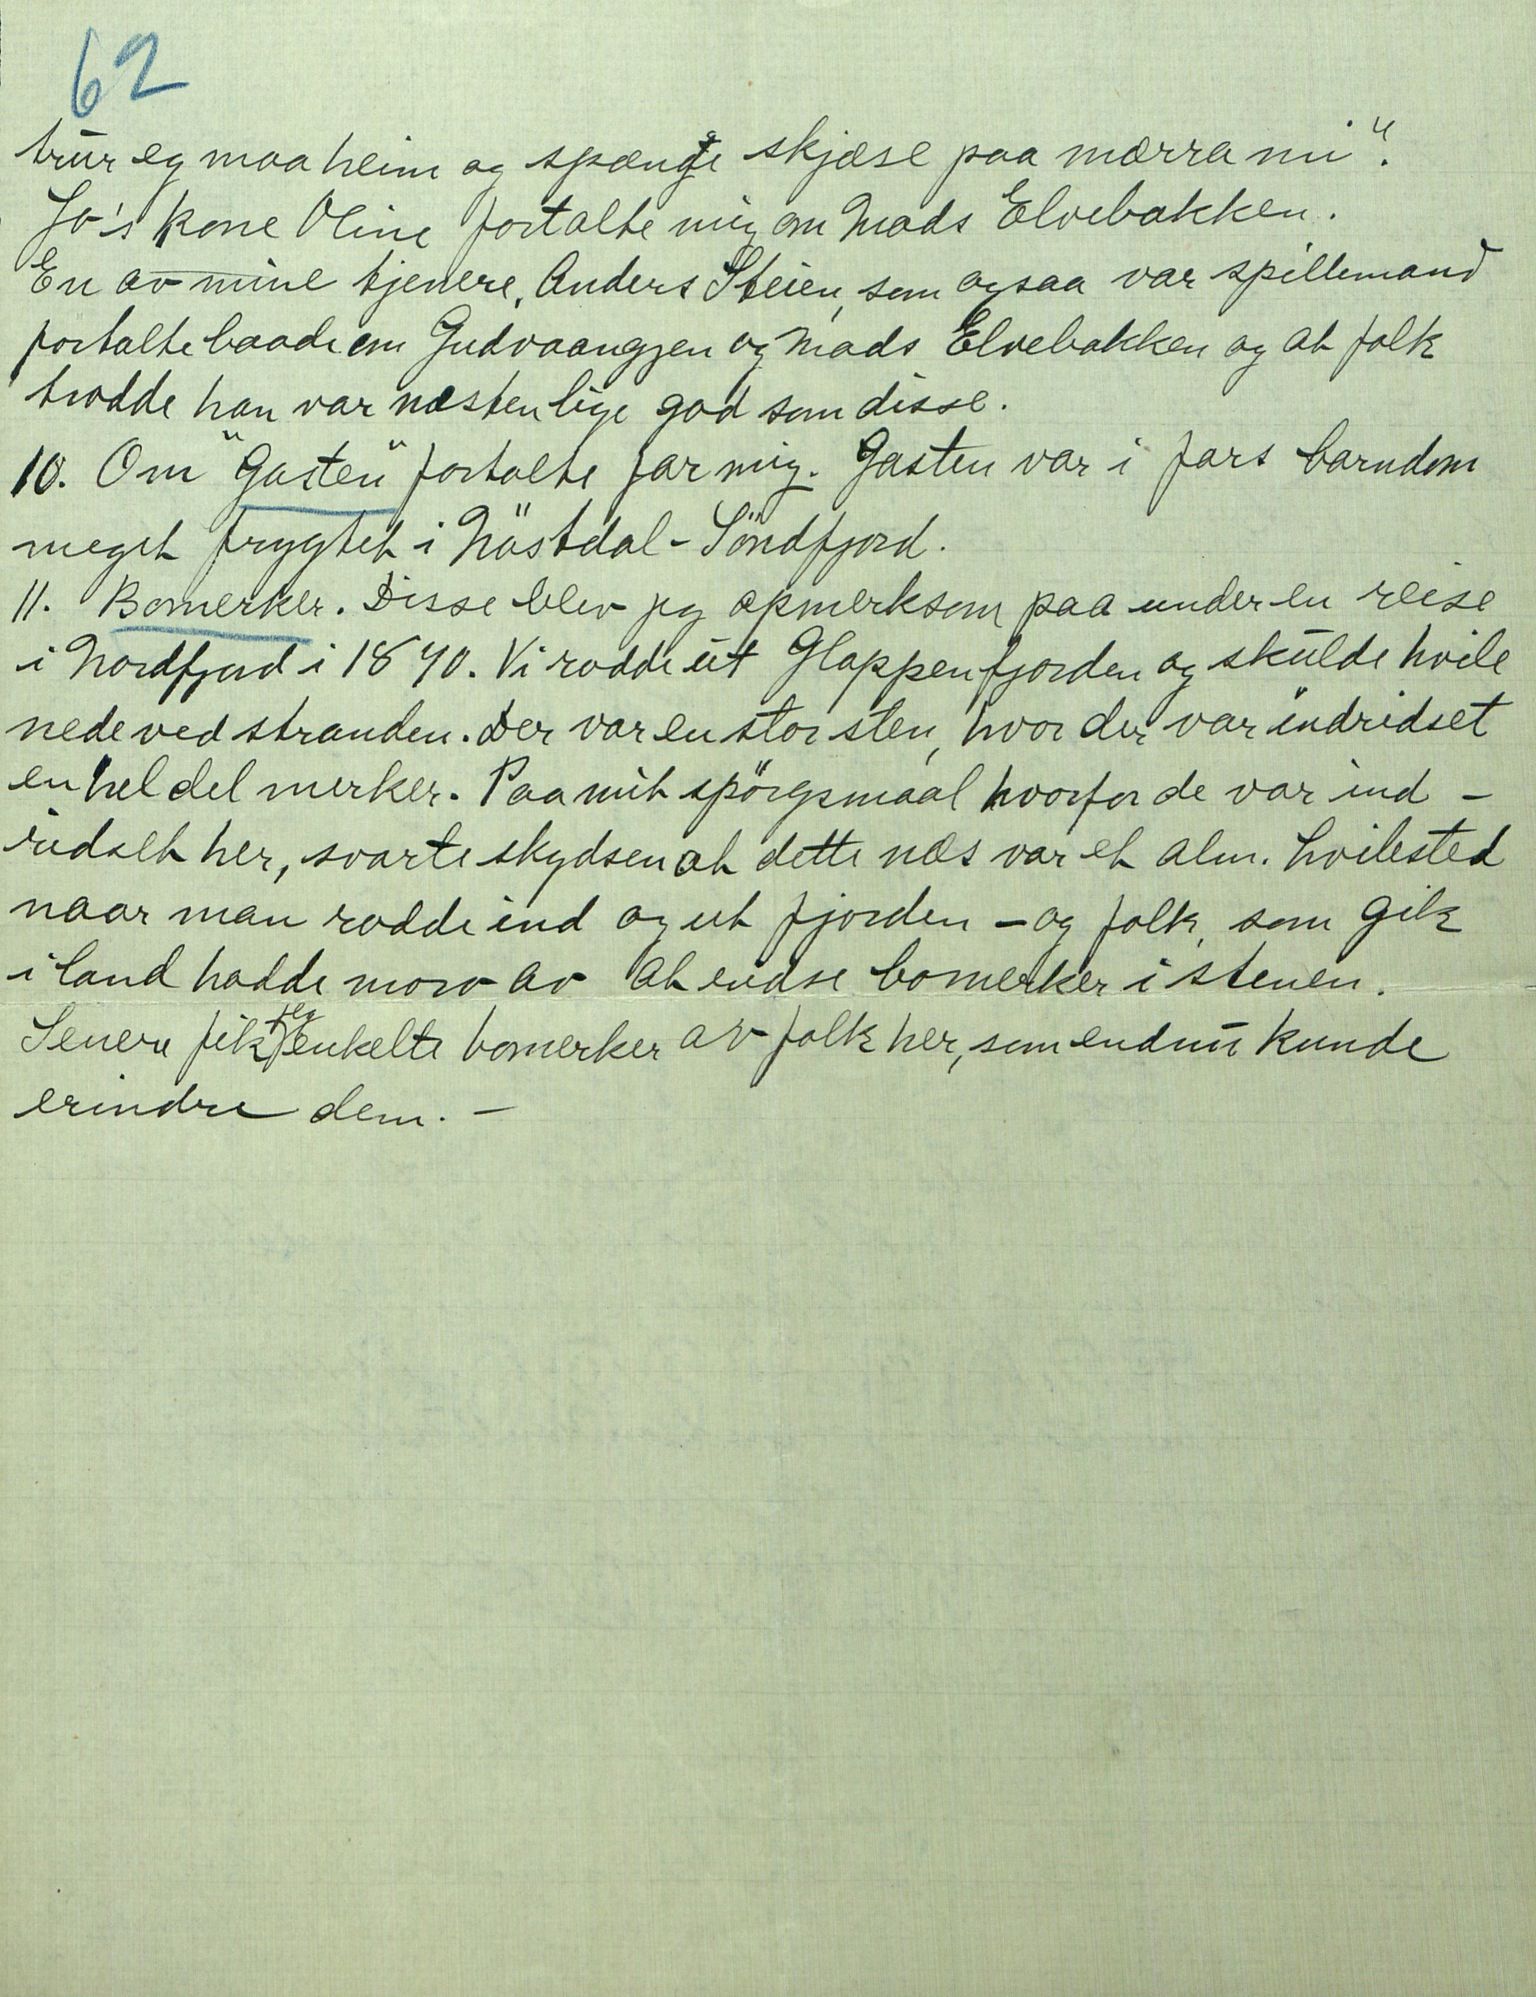 62
trur eg maa heim og spænge skjæse paa mærra mi".
Jo's kone Oline fortalte mig om Mads Elvebakken.
En av mine tjenere, Anders Steien, som ogsaa var spillemand
fortalte baade om Gudvaangjen og Mads Elvebakken og at folk
trodde han var næsten lige god som disse.
10. Om "Gasten" fortalte far mig. Gasten var i fars barndom
meget frygtet i Nöstdal - Söndfjord.
11. Bomerker. Disse blev jeg opmerksom paa under en reise
i Nordfjord i 1890. Vi rodde ut Gloppenfjorden og skulde hvile
nede ved stranden. Der var en stor sten, hvor der var indridset
en hel del merker. Paa mit spörgsmaal hvorfor de var ind -
ridset her, svarte skydsen at dette næs var et alm. hvilested
naar man rodde ind og ut fjorden - og folk, som gik
i land hadde moro av at ridse bomerker i stenen.
Senere fik jeg enkelte bomerker av folk her, som endnu kunde
erindre dem. -